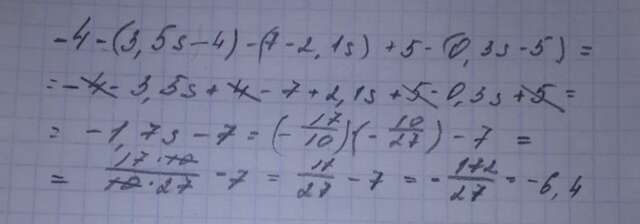 -4-(3,5s-4)-(7-2,1s)+5-(0,3s-5)=
=-4-3,5s+4-7+2,1s+5-0,3s+5=
=-1,7s-7=(-17/10)(-10/27)-7=
=17·10/10·27-7=17/27-7=-172/27=-6,4